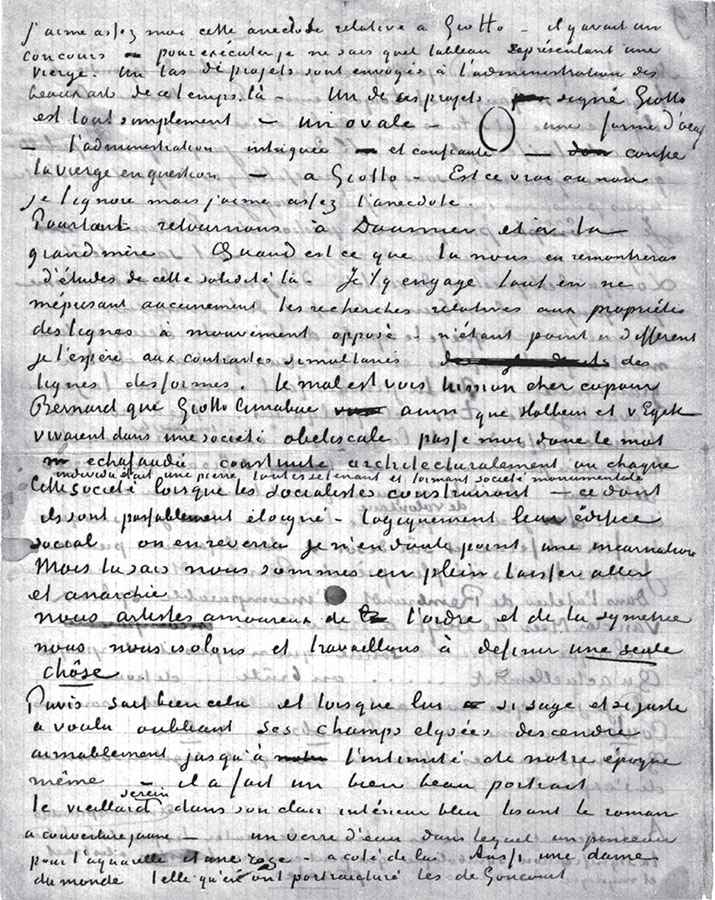 j'aime assez moi cette anecdote relative a Giotto – il y avait un
concours – pour exécuter je ne sais quel tableau représentant une
vierge. Un tas de projets sont envoyés à l'administration des
beaux arts de ce temps là – Un de ces projets signé Giotto
est tout simplement – un ovale – une forme d'oeuf
– l'administration intriguée – et confiante – confie
la vierge en question – a Giotto – Est ce vrai ou non
je l'ignore mais j'aime assez l'anecdote.
Pourtant retournons à Daumier et à ta
grand mère Quand est ce que tu nous en remontreras
d'études de cette solidité là – Je t'y engage tout en ne
méprisant aucunement tes recherches relatives aux propriétés
des lignes à mouvement opposé – n'étant point indifferent
je l'espère aux contrastes simultanés des
lignes des formes. Le mal est vois tu mon cher copain
Bernard que Giotto Cimabue ainsi que Holbein et v Eyck
vivaient dans une societé obeliscale passe moi donc le mot
echafaudée construite architecturalement ou chaque
individu était une pierre toutes se tenant et formant société monumentale
Cette société lorsque les socialistes construiront – ce dont
ils sont passablement éloigné – logiquement leur édifice
social on en reverra je n'en doute point une incarnation
Mais tu sais nous sommes en plein laisser aller
et anarchie
nous artistes amoureux de l'ordre et de la symetrie
nous nous isolons et travaillons à définir une seule
chôse
Puvis sait bien cela et lorsque lui si sage et si juste
a voulu oubliant ses champs elysées descendre
aimablement jusqu'à l'intimité de notre époque
même il a fait un bien beau portrait
serein
le vieillard dans son clair intérieur bleu lisant le roman
a couverture jaune – un verre d'eau dans lequel un pinceau
pour l'aquarelle et une rose – a coté de lui Aussi une dame
du monde telle qu'en ont portraicturé les de Goncourt